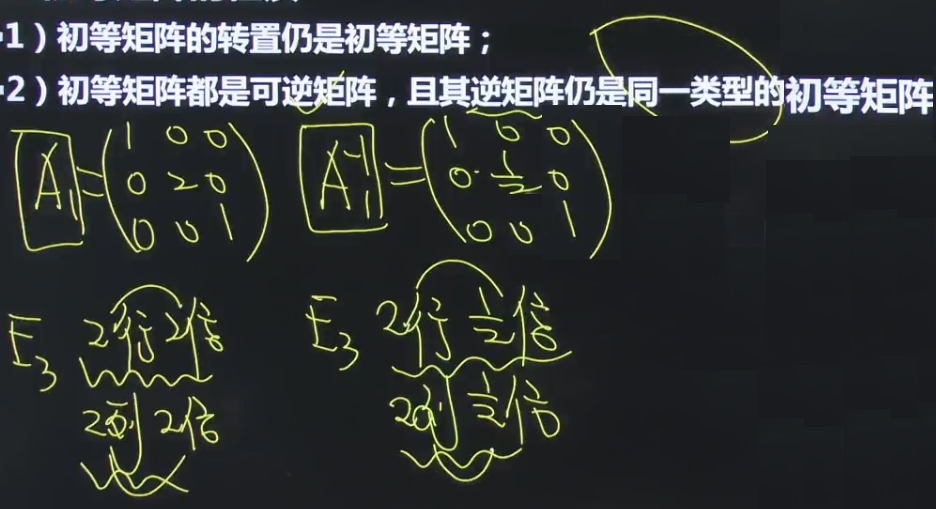 1）初等矩阵的转置仍是初等矩阵；
2）初等矩阵都是可逆矩阵，且其逆矩阵仍是同一类型的初等矩阵
A₁=(1 0 0
0 2 0
0 0 1)
A₁⁻¹=(1 0 0
0 1/2 0
0 0 1)
E₃ 2行2倍
2列2倍
E₃ 2行1/2倍
2列1/2倍